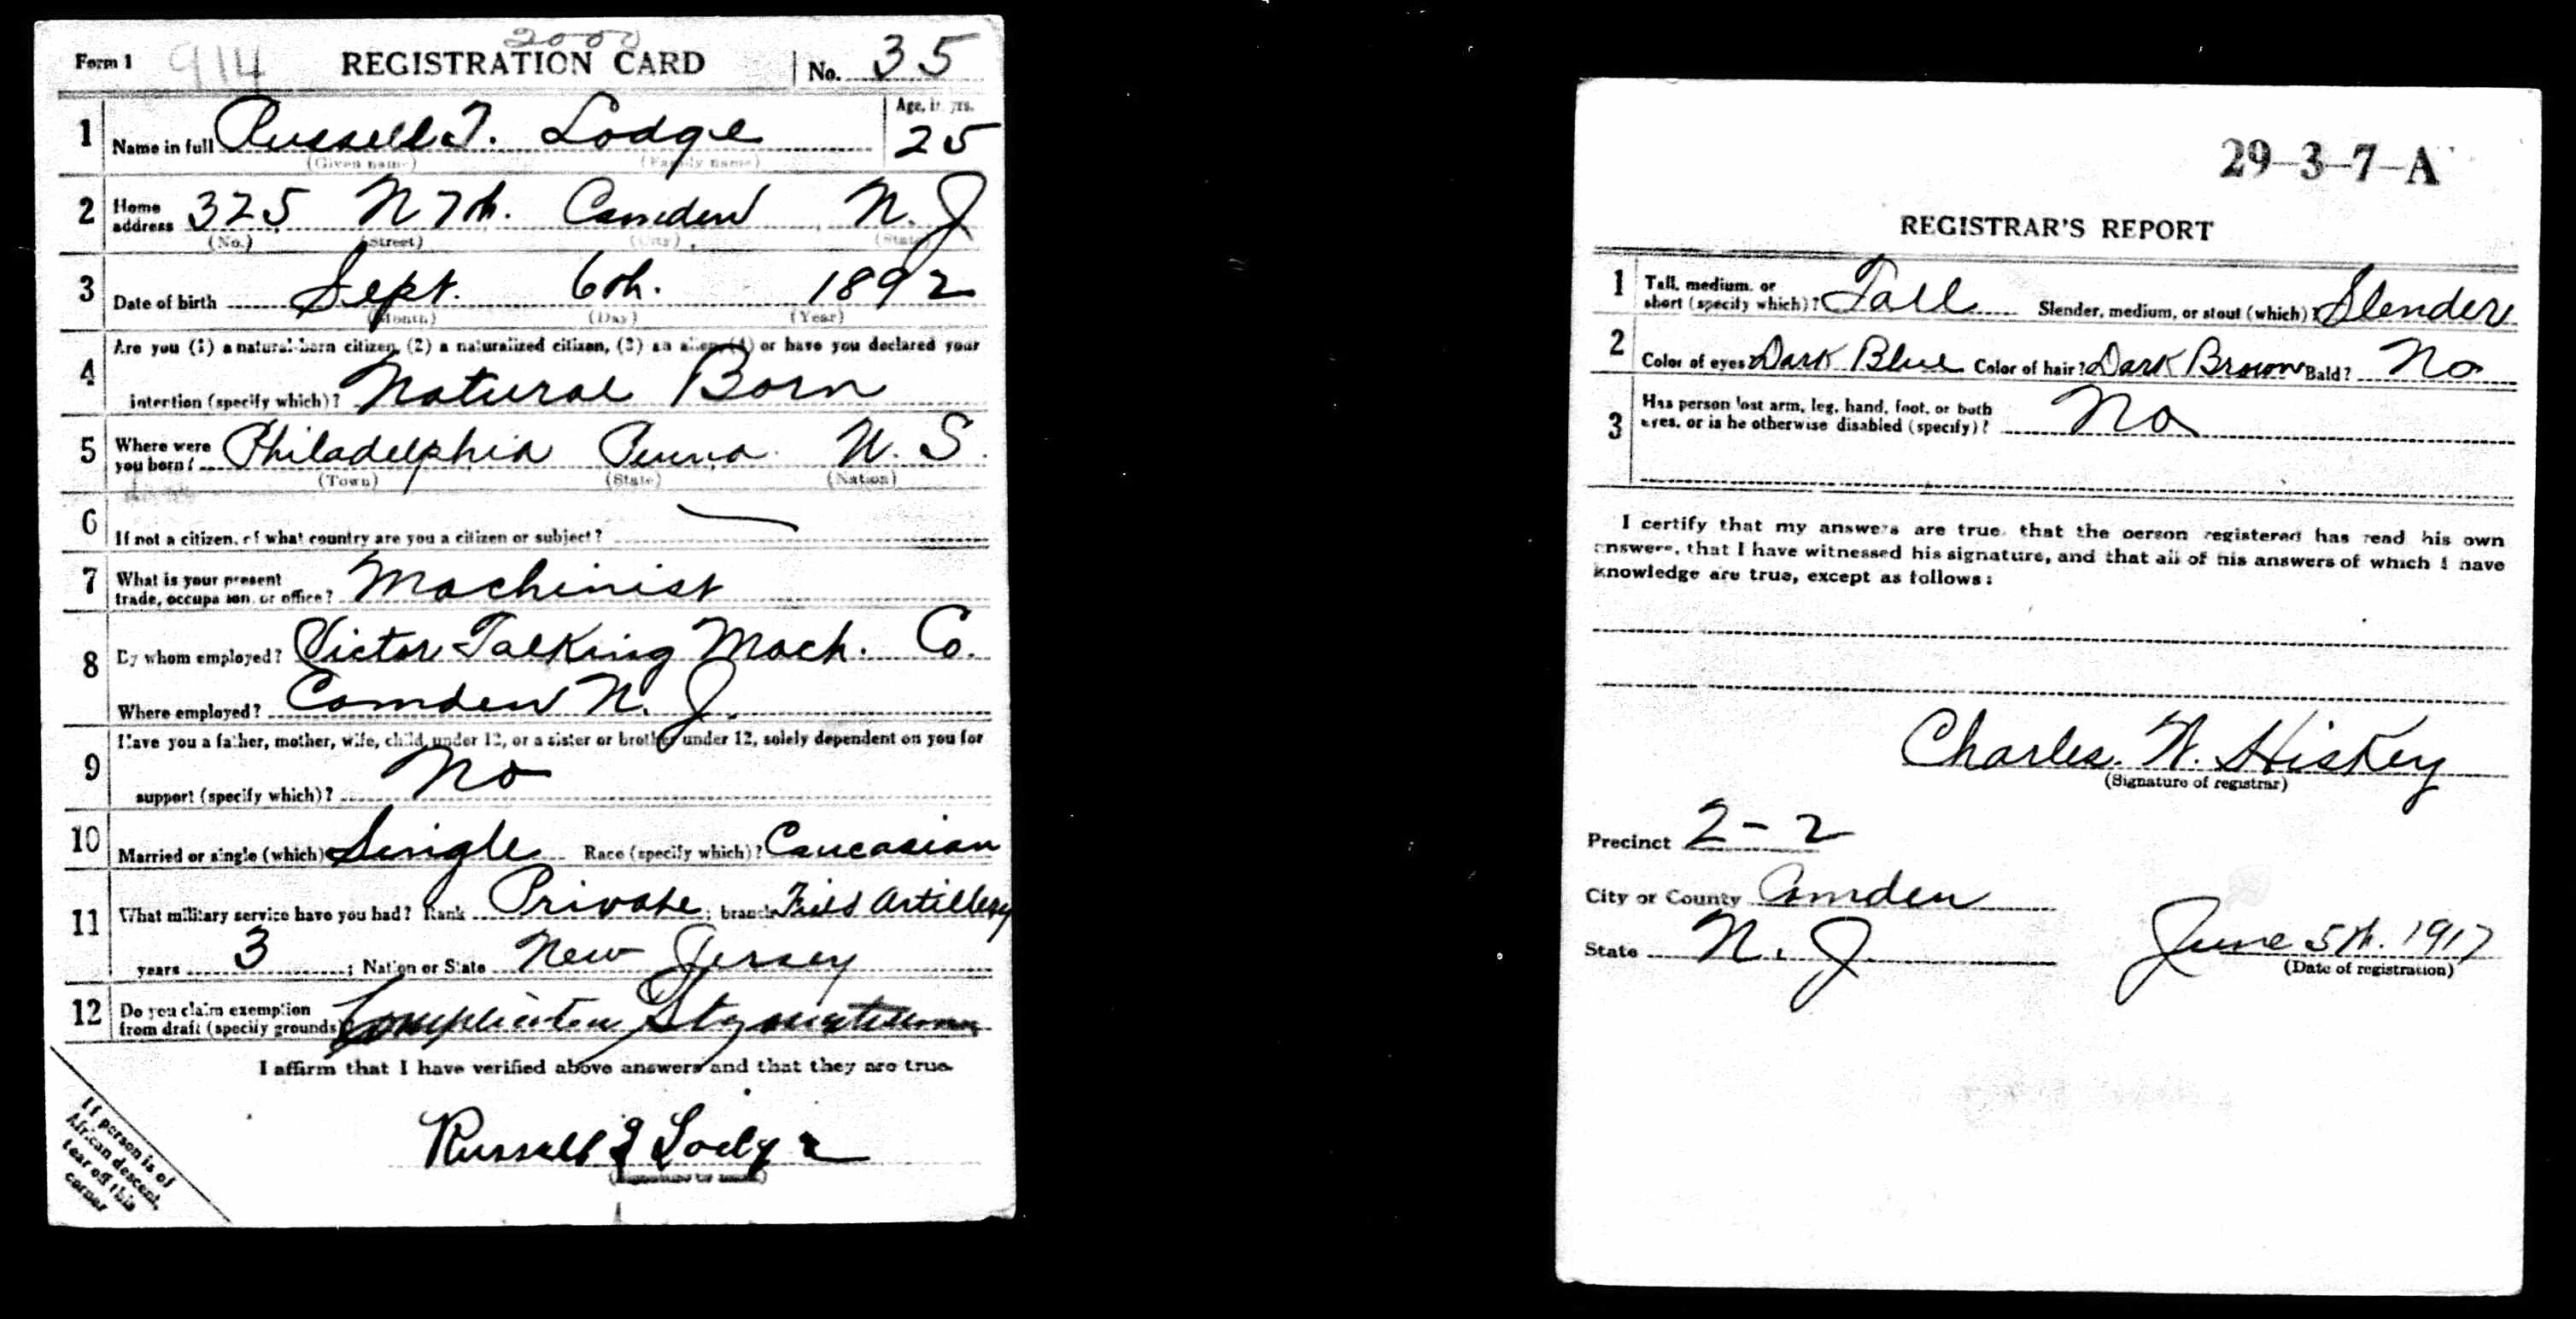 2000
Form 1 914 REGISTRATION CARD No. 35
1 Name in full Russell T. Lodge Age, in yrs. 25
(Given name) (Family name)
2 Home address 325 N 7th. Camden N. J
(No.) (Street) (City) (State)
3 Date of birth Sept. 6th. 1892
(Month) (Day) (Year)
4 Are you (1) a natural-born citizen, (2) a naturalized citizen, (3) an alien, (4) or have you declared your
intention (specify which)? Natural Born
5 Where were you born? Philadelphia Penna. U. S.
(Town) (State) (Nation)
6 If not a citizen, of what country are you a citizen or subject?
7 What is your present trade, occupation, or office? Machinist
8 By whom employed? Victor Talking Mach. Co.
Where employed? Camden N. J.
9 Have you a father, mother, wife, child under 12, or a sister or brother under 12, solely dependent on you for
support (specify which)? No
10 Married or single (which)? Single Race (specify which)? Caucasian
11 What military service have you had? Rank Private ; branch Field Artillery
years 3 ; Nation or State New Jersey
12 Do you claim exemption from draft (specify grounds)?
I affirm that I have verified above answers and that they are true.
Russell T Lodge
(Signature or mark)
If person is of
African descent,
tear off this
corner
29-3-7-A
REGISTRAR'S REPORT
1 Tall, medium, or short (specify which)? Tall Slender, medium, or stout (which)? Slender
2 Color of eyes? Dark Blue Color of hair? Dark Brown Bald? No
3 Has person lost arm, leg, hand, foot, or both eyes, or is he otherwise disabled (specify)? No
I certify that my answers are true, that the person registered has read his own
answers, that I have witnessed his signature, and that all of his answers of which I have
knowledge are true, except as follows:
Charles. W. Hiskey
(Signature of registrar)
Precinct 2-2
City or County Camden
State N. J. June 5th. 1917
(Date of registration)